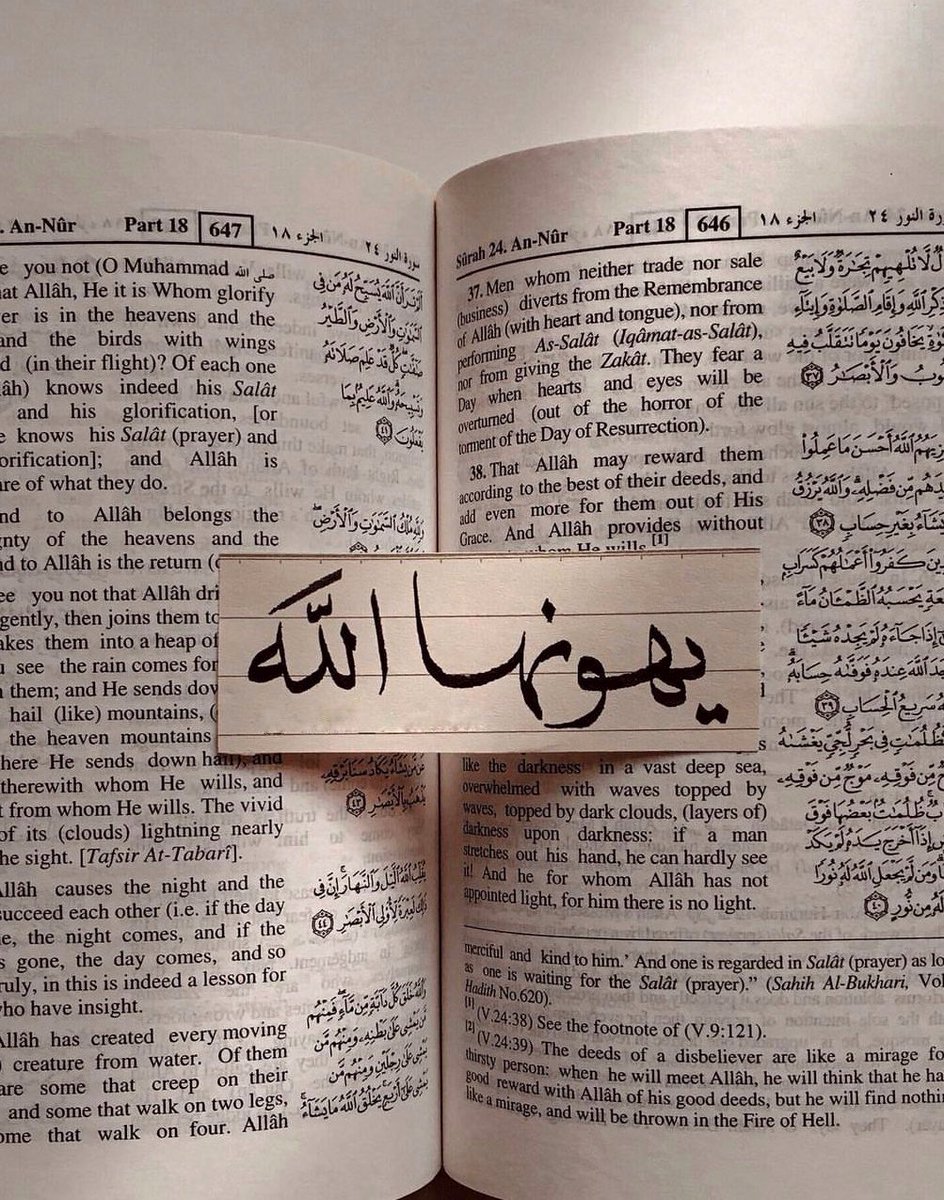 Sûrah 24. An-Nûr Part 18 646 الجزء ١٨ سورة النور ٢٤
37. Men whom neither trade nor sale
(business) diverts from the Remembrance
of Allâh (with heart and tongue), nor from
performing As-Salât (Iqâmat-as-Salât),
nor from giving the Zakât. They fear a
Day when hearts and eyes will be
overturned (out of the horror of the
torment of the Day of Resurrection).
38. That Allâh may reward them
according to the best of their deeds, and
add even more for them out of His
Grace. And Allâh provides without
whom He wills.[1]
like the darkness in a vast deep sea,
overwhelmed with waves topped by
waves, topped by dark clouds, (layers of)
darkness upon darkness: if a man
stretches out his hand, he can hardly see
it! And he for whom Allâh has not
appointed light, for him there is no light.
لَّا تُلْهِيهِمْ تِجَٰرَةٌ وَلَا بَيْعٌ
ذِكْرِ ٱللَّهِ وَإِقَامِ ٱلصَّلَوٰةِ وَإِيتَآءِ
يَخَافُونَ يَوْمًا تَتَقَلَّبُ فِيهِ
وَٱلْأَبْصَٰرُ ٣٧
ٱللَّهُ أَحْسَنَ مَا عَمِلُوا۟
مِّن فَضْلِهِۦ وَٱللَّهُ يَرْزُقُ
يَشَآءُ بِغَيْرِ حِسَابٍ ٣٨
كَفَرُوٓا۟ أَعْمَٰلُهُمْ كَسَرَابٍ
يَحْسَبُهُ ٱلظَّمْـَٔانُ مَآءً
إِذَا جَآءَهُۥ لَمْ يَجِدْهُ شَيْـًٔا
ٱللَّهَ عِندَهُۥ فَوَفَّىٰهُ حِسَابَهُۥ
سَرِيعُ ٱلْحِسَابِ ٣٩
كَظُلُمَٰتٍ فِى بَحْرٍ لُّجِّىٍّ يَغْشَىٰهُ
مِّن فَوْقِهِۦ مَوْجٌ مِّن فَوْقِهِۦ
ظُلُمَٰتٌۢ بَعْضُهَا فَوْقَ
إِذَآ أَخْرَجَ يَدَهُۥ لَمْ يَكَدْ
وَمَن لَّمْ يَجْعَلِ ٱللَّهُ لَهُۥ نُورًا
مِن نُّورٍ ٤٠
merciful and kind to him.' And one is regarded in Salât (prayer) as lo
as one is waiting for the Salât (prayer)." (Sahih Al-Bukhari, Vol
Hadith No.620).
[1] (V.24:38) See the footnote of (V.9:121).
[2] (V.24:39) The deeds of a disbeliever are like a mirage fo
thirsty person: when he will meet Allâh, he will think that he ha
good reward with Allâh of his good deeds, but he will find nothin
like a mirage, and will be thrown in the Fire of Hell.
يهونها الله
An-Nûr Part 18 647 الجزء ١٨ سورة النور ٢٤
you not (O Muhammad صلى الله
at Allâh, He it is Whom glorify
er is in the heavens and the
and the birds with wings
d (in their flight)? Of each one
lâh) knows indeed his Salât
and his glorification, [or
e knows his Salât (prayer) and
orification]; and Allâh is
are of what they do.
nd to Allâh belongs the
gnty of the heavens and the
nd to Allâh is the return (
ee you not that Allâh dri
gently, then joins them to
akes them into a heap of
see the rain comes for
them; and He sends dov
hail (like) mountains, (
the heaven mountains
here He sends down hail), and
therewith whom He wills, and
t from whom He wills. The vivid
of its (clouds) lightning nearly
he sight. [Tafsir At-Tabarî].
Allâh causes the night and the
succeed each other (i.e. if the day
e, the night comes, and if the
s gone, the day comes, and so
ruly, in this is indeed a lesson for
who have insight.
Allâh has created every moving
creature from water. Of them
are some that creep on their
and some that walk on two legs,
ome that walk on four. Allâh
أَلَمْ تَرَ أَنَّ ٱللَّهَ يُسَبِّحُ لَهُۥ مَن فِى
ٱلسَّمَٰوَٰتِ وَٱلْأَرْضِ وَٱلطَّيْرُ
صَٰٓفَّٰتٍ كُلٌّ قَدْ عَلِمَ صَلَاتَهُۥ
وَتَسْبِيحَهُۥ وَٱللَّهُ عَلِيمٌۢ بِمَا
يَفْعَلُونَ ٤١
وَلِلَّهِ مُلْكُ ٱلسَّمَٰوَٰتِ وَٱلْأَرْضِ
عَن مَّن يَشَآءُ يَكَادُ سَنَا بَرْقِهِۦ
يَذْهَبُ بِٱلْأَبْصَٰرِ ٤٣
يُقَلِّبُ ٱللَّهُ ٱلَّيْلَ وَٱلنَّهَارَ إِنَّ فِى
ذَٰلِكَ لَعِبْرَةً لِّأُو۟لِى ٱلْأَبْصَٰرِ ٤٤
وَٱللَّهُ خَلَقَ كُلَّ دَآبَّةٍ مِّن مَّآءٍ فَمِنْهُم
مَّن يَمْشِى عَلَىٰ بَطْنِهِۦ وَمِنْهُم مَّن
يَمْشِى عَلَىٰ رِجْلَيْنِ وَمِنْهُم مَّن
يَمْشِى عَلَىٰٓ أَرْبَعٍ يَخْلُقُ ٱللَّهُ مَا يَشَآءُ